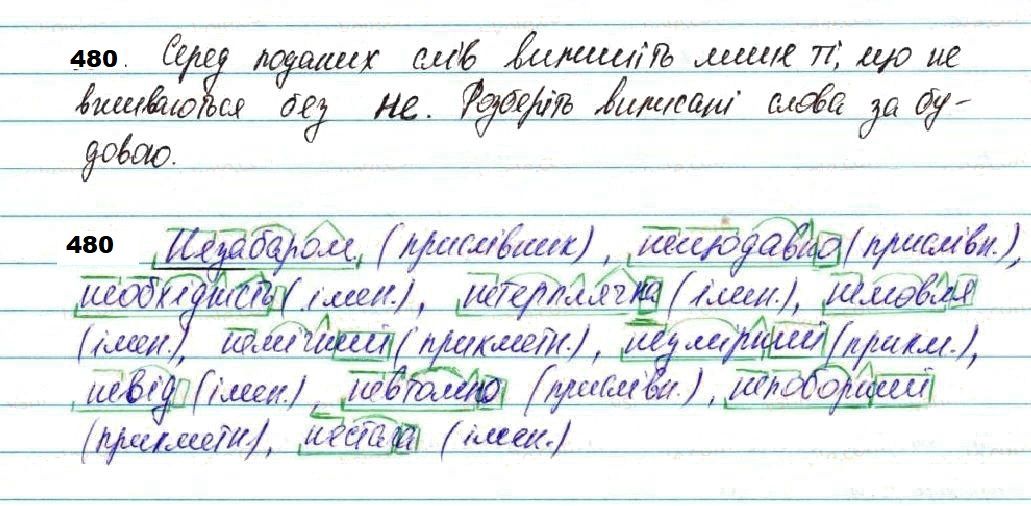 480. Серед поданих слів випишіть лише ті, що не
вживаються без не. Розберіть виписані слова за бу-
довою.
480 Незабаром (прислівник), нещодавно (прислівн.),
необхідність (імен.), нетерплячка (імен.), немовля
(імен.), немічний (прикметн.), неумирний (прикм.),
невід (імен.), невтомно (прислівн.), непоборний
(прикметн), нестача (імен.)